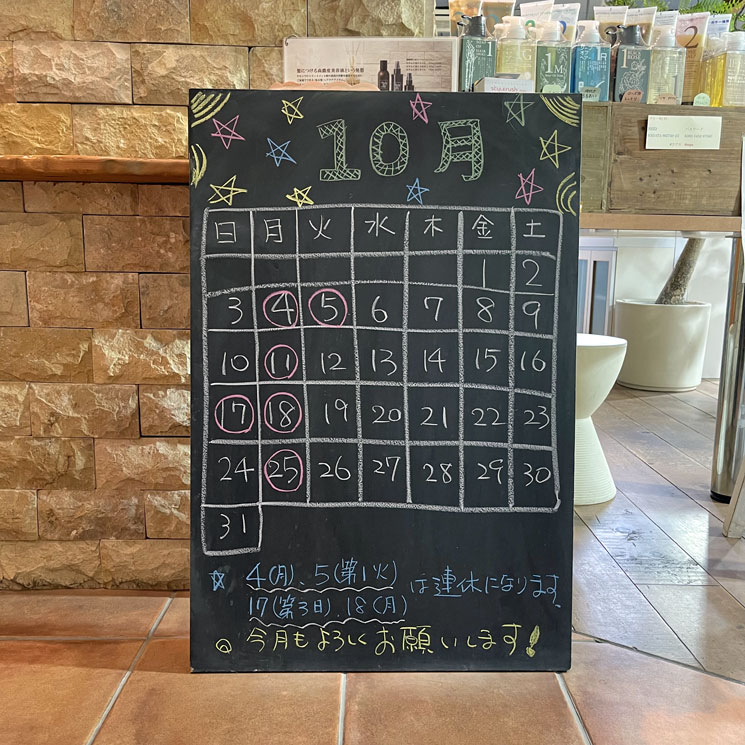 髪につける高濃度美容液という発想
10月
日 月 火 水 木 金 土
1 2
3 4 5 6 7 8 9
10 11 12 13 14 15 16
17 18 19 20 21 22 23
24 25 26 27 28 29 30
31
☆ 4(月)、5(第1火)
17(第3日)、18(月)
は連休になります
今月もよろしくお願いします!